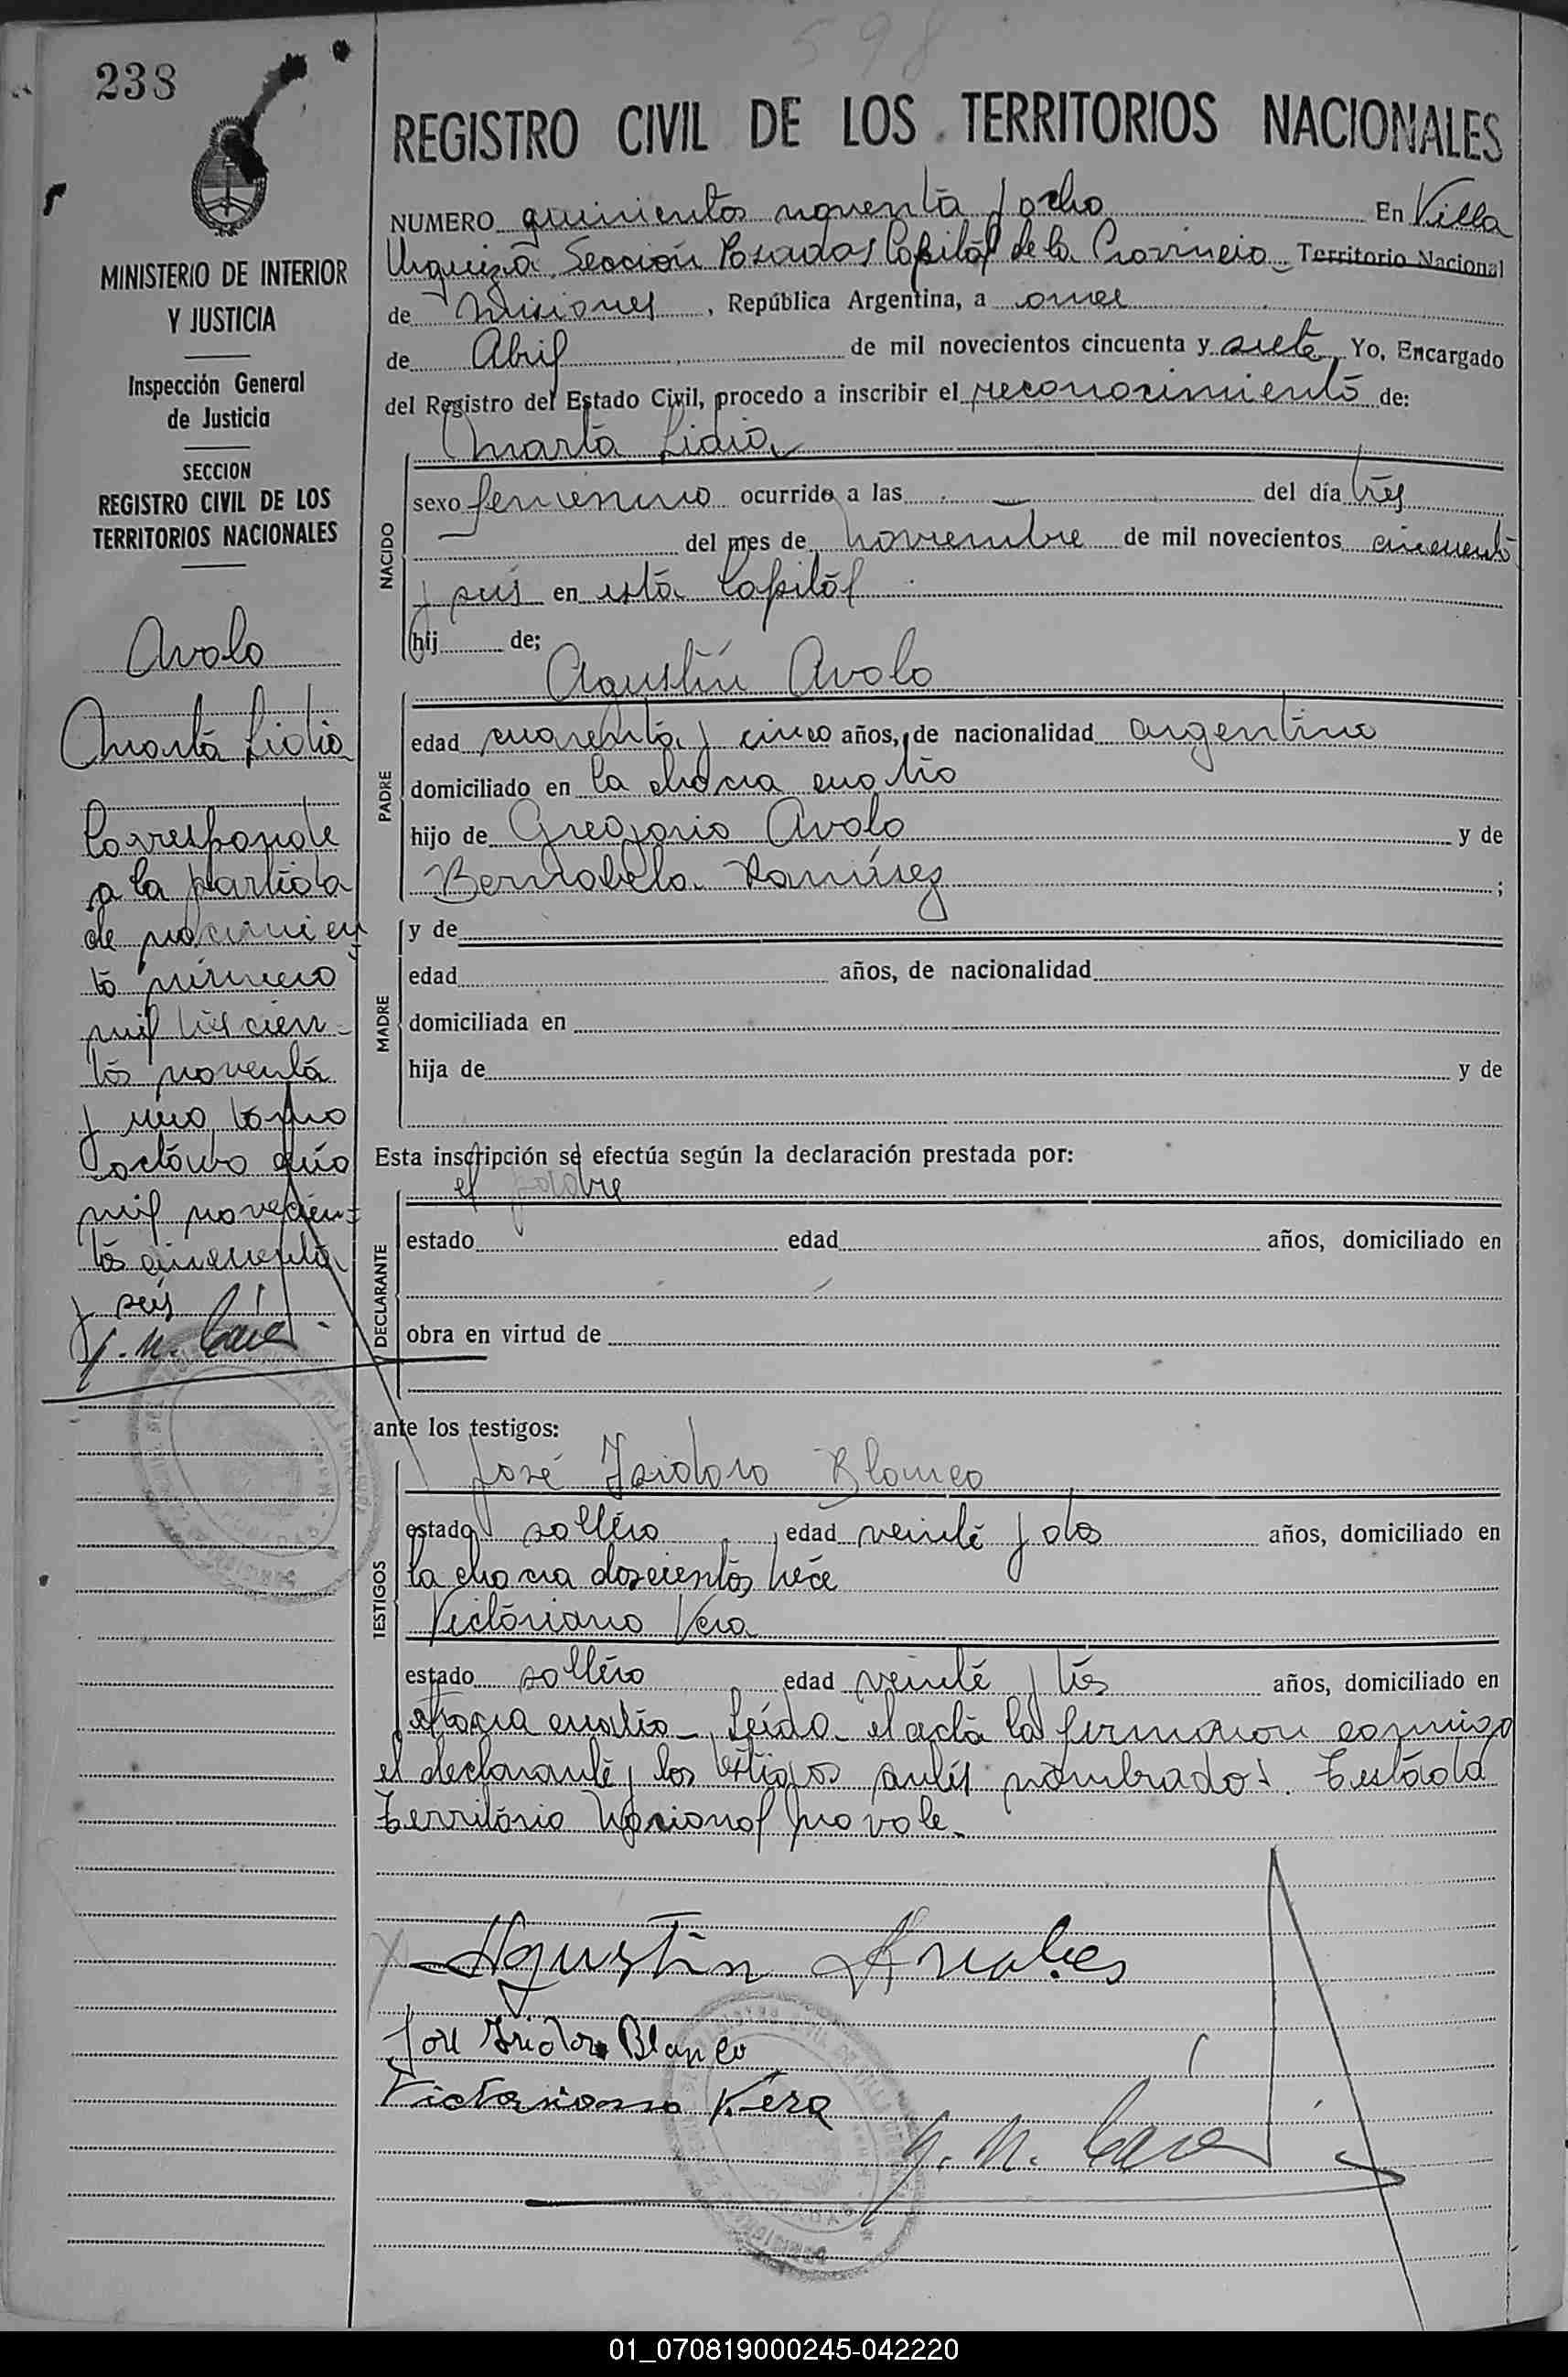 598
238
REGISTRO CIVIL DE LOS TERRITORIOS NACIONALES
MINISTERIO DE INTERIOR
Y JUSTICIA
Inspección General
de Justicia
SECCION
REGISTRO CIVIL DE LOS
TERRITORIOS NACIONALES
Avalo
Marta Lidia
Corresponde
a la partida
de nacimien
to número
mil trescien-
tos noventa
y uno tomo
octavo año
mil novecien=
tos cincuenta
y seis
NUMERO quinientos noventa y ocho En Villa
Urquiza Sección Posadas Capital de la Provincia Territorio Nacional
de Misiones, República Argentina, a once
de Abril de mil novecientos cincuenta y siete, Yo, Encargado
del Registro del Estado Civil, procedo a inscribir el reconocimiento de:
NACIDO
Marta Lidia
sexo femenino ocurrido a las del día tres
del mes de noviembre de mil novecientos cincuenta
y seis en esta Capital
hij de;
PADRE
Agustín Avalo
edad cuarenta y cinco años, de nacionalidad argentino
domiciliado en la chacra cuatro
hijo de Gregorio Avalo y de
Bernabela Ramírez ;
MADRE
y de
edad años, de nacionalidad
domiciliada en
hija de y de
Esta inscripción se efectúa según la declaración prestada por:
DECLARANTE
el padre
estado edad años, domiciliado en
obra en virtud de
ante los testigos:
TESTIGOS
José Isidoro Blanco
estado soltero, edad veinte y dos años, domiciliado en
la chacra doscientos trece
Victoriano Vera
estado soltero edad veinte y tres años, domiciliado en
chacra cuatro_ Leída el acta la firmaron conmigo
el declarante y los testigos antes nombrados. Testado
Territorio Nacional no vale_
Agustin
José Isidoro Blanco
Victoriano Vera
01_070819000245-042220